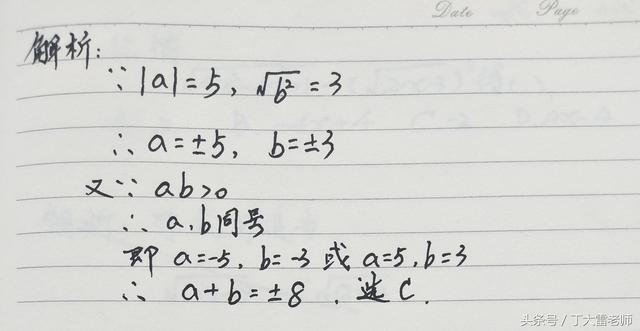 Date Page
解析:
∵ |a|=5, √b² = 3
∴ a=±5, b=±3
又∵ ab>0
∴ a,b同号
即 a=-5, b=-3 或 a=5, b=3
∴ a+b=±8 . 选C.
头条号 / 丁大雷老师